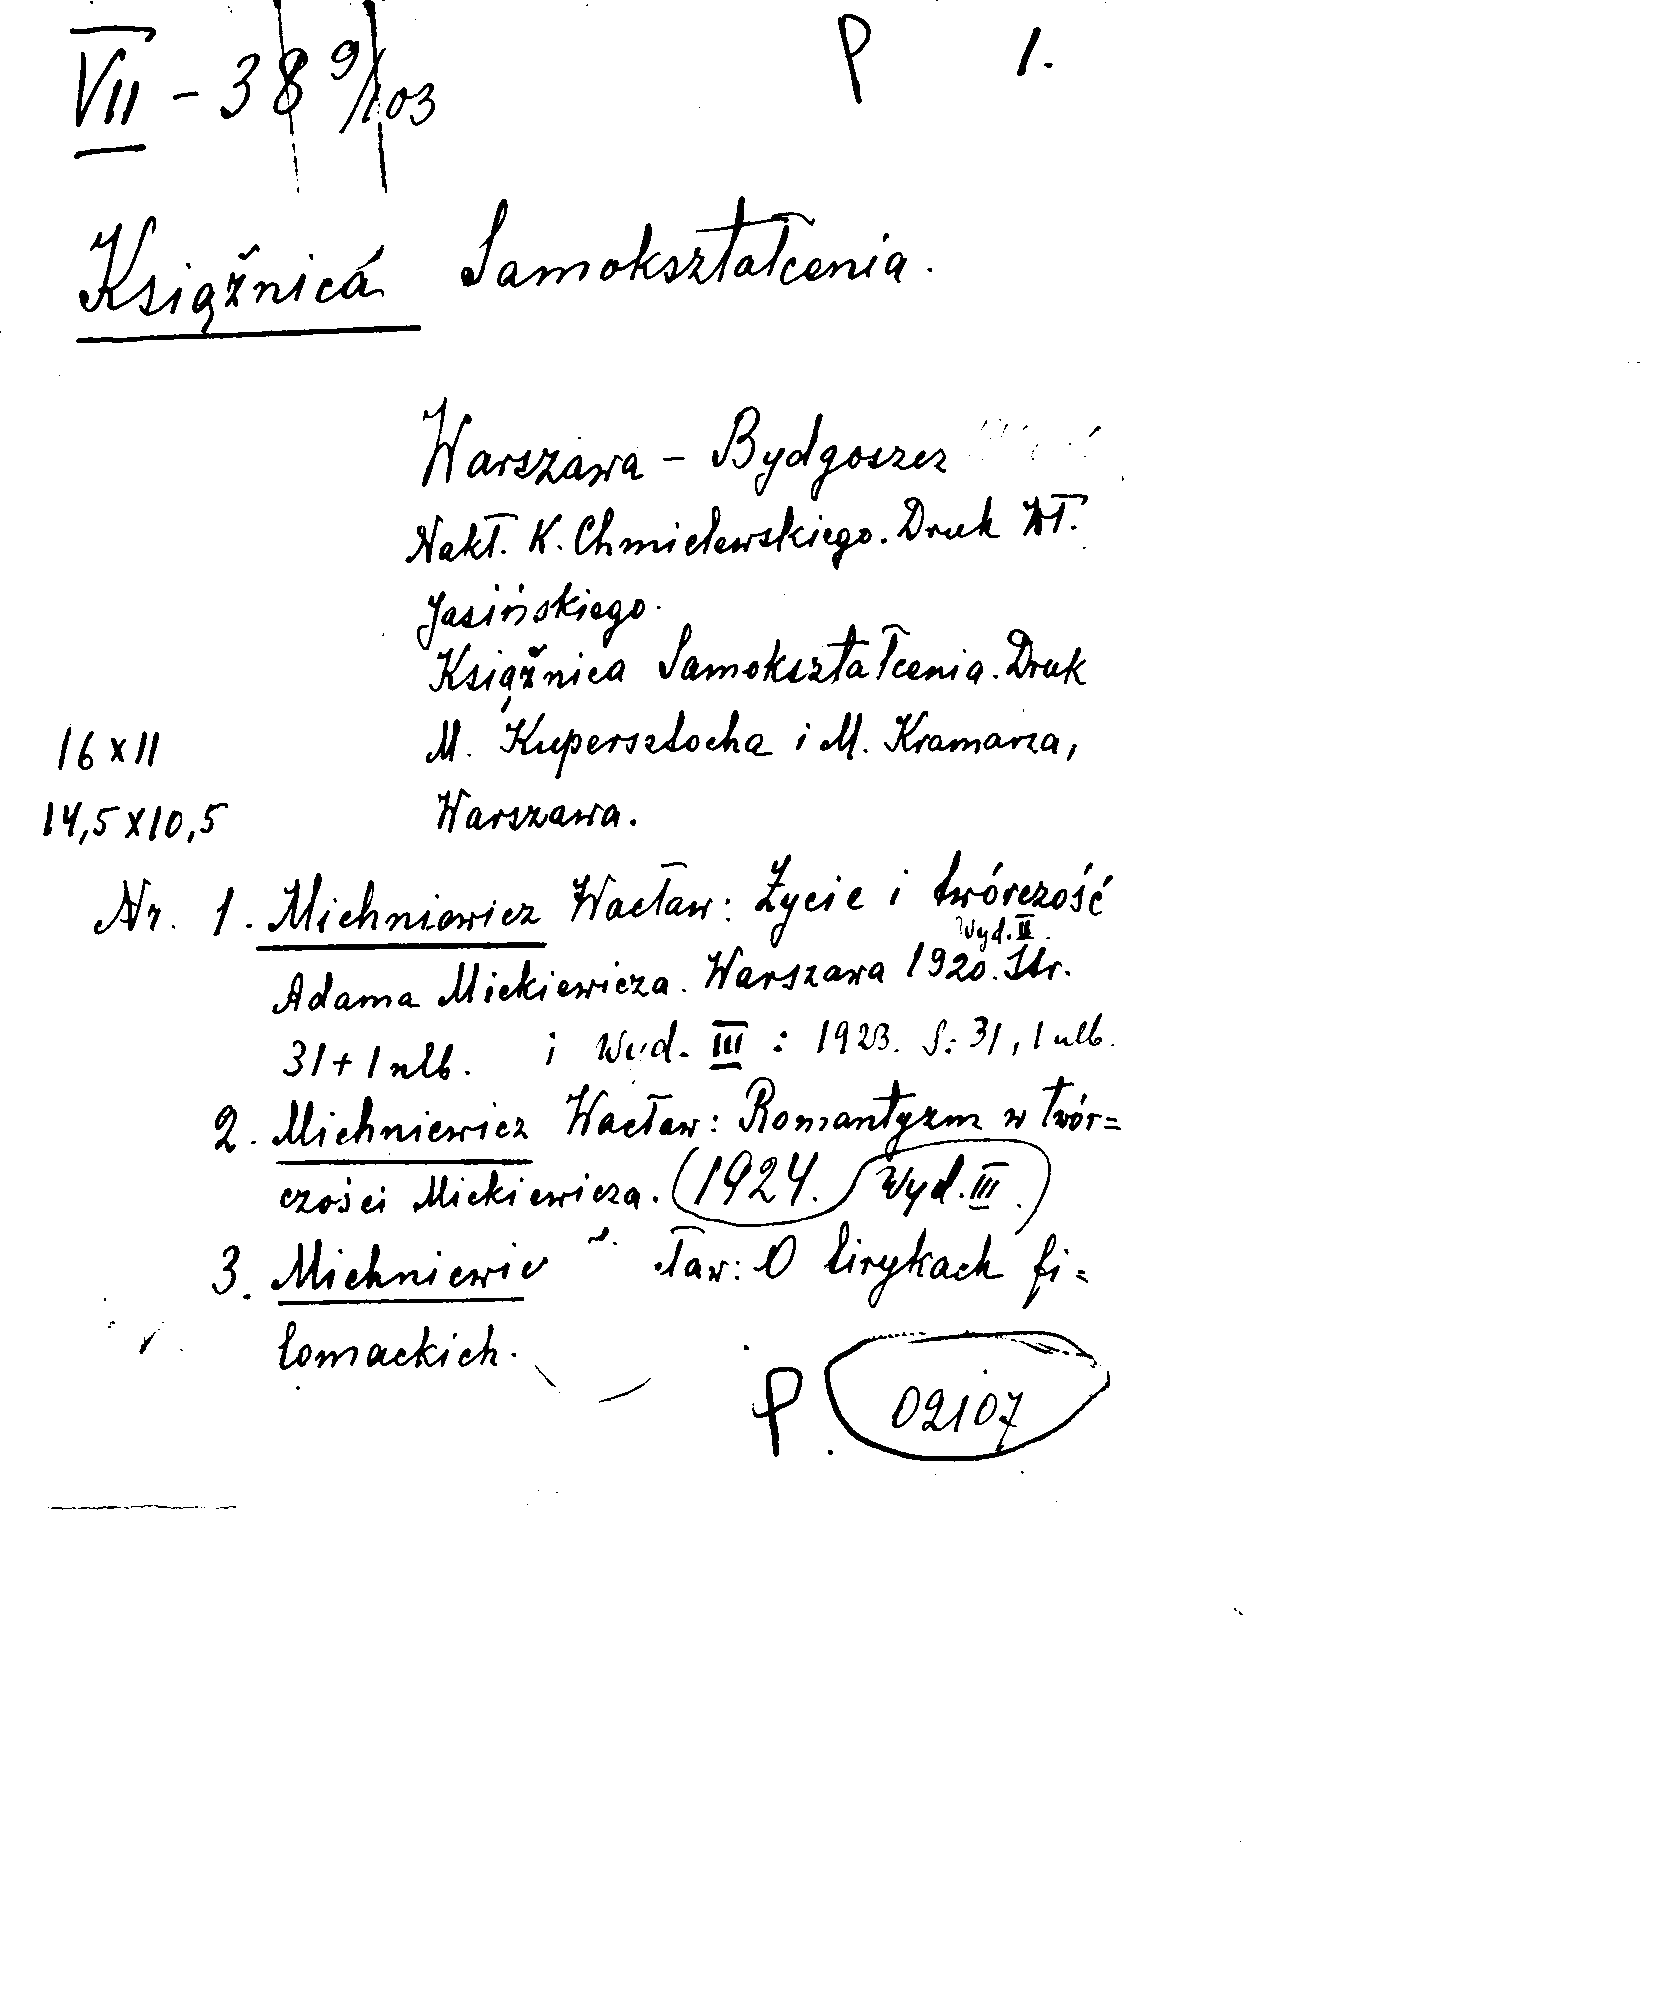 VII - 389/103 P 1.
Książnica Samokształcenia.
Warszawa - Bydgoszcz
Nakł. K. Chmielewskiego. Druk Wł.
Jasińskiego.
Książnica Samokształcenia. Druk
16 x 11 M. Kupersztocha i M. Kramarza,
14,5 x 10,5 Warszawa.
Nr. 1. Michniewicz Wacław: Życie i twórczość
Wyd. II.
Adama Mickiewicza. Warszawa 1920. Str.
31 + 1 nlb. i Wyd. III : 1923. S: 31, 1 nlb.
2. Michniewicz Wacław: Romantyzm w twór=
czości Mickiewicza. (1924. Wyd. III.)
3. Michniewic ław: O lirykach fi=
lomackich.
P. 02107